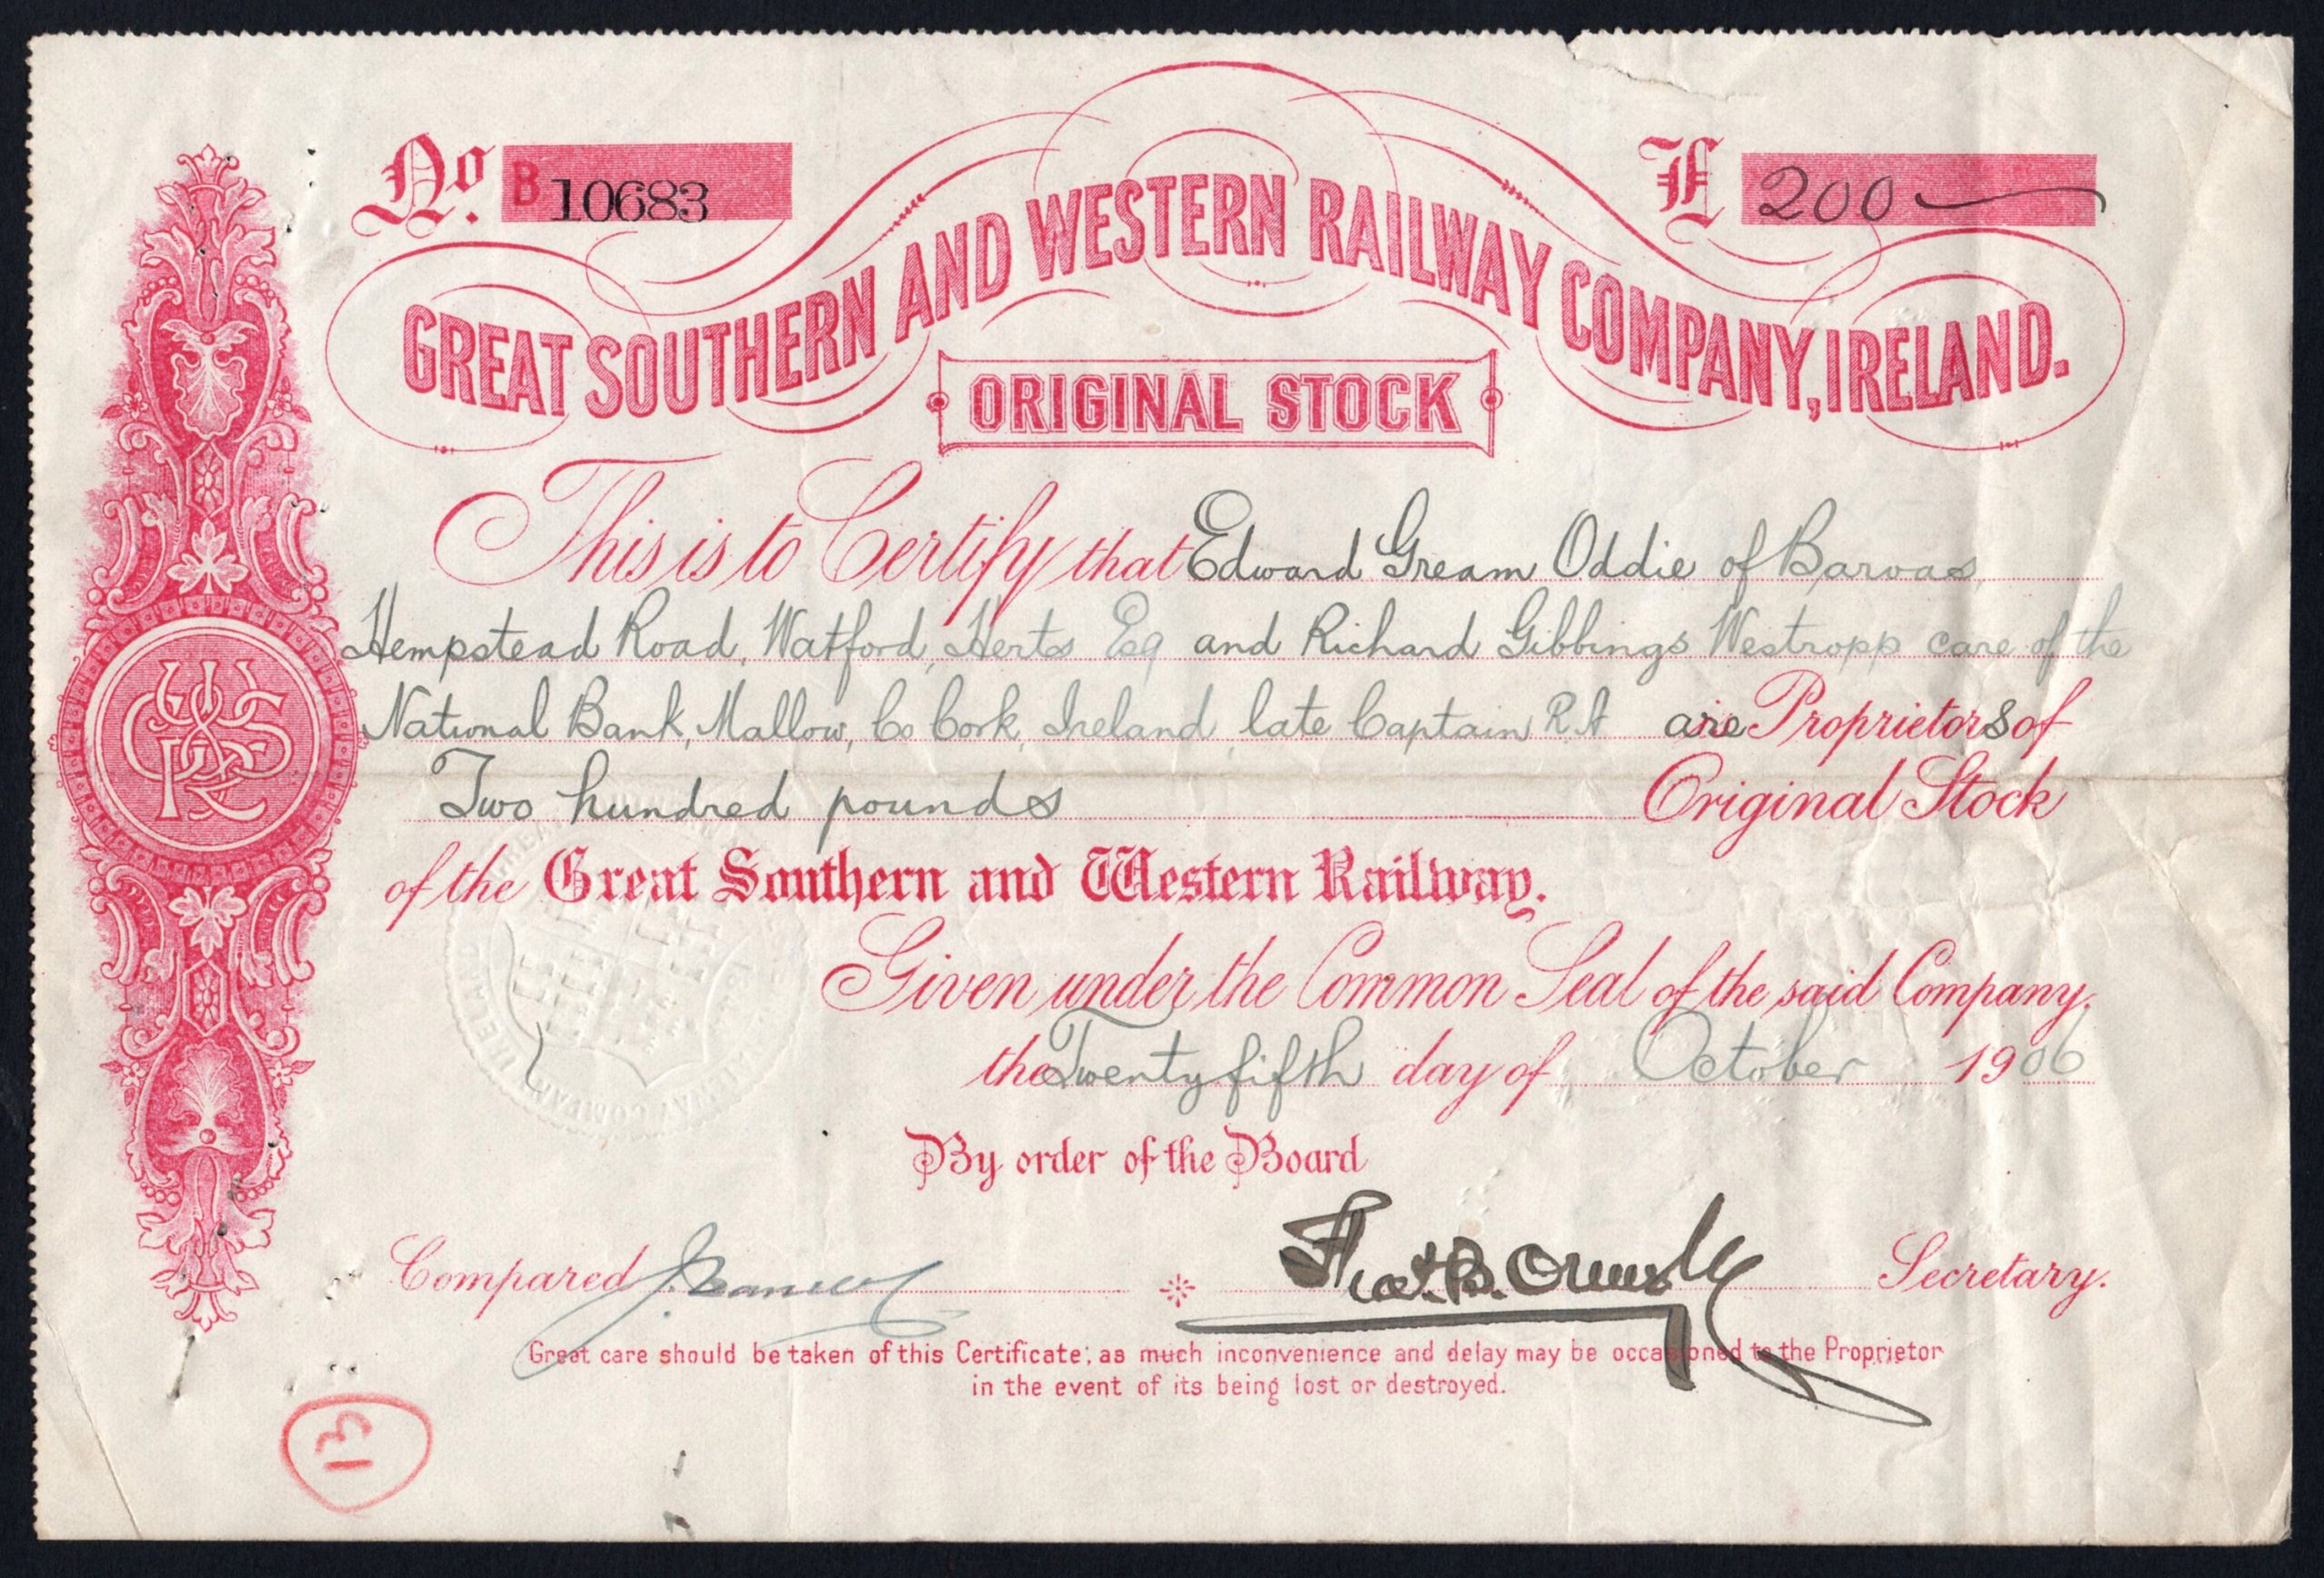 No. B 10683
£ 200
GREAT SOUTHERN AND WESTERN RAILWAY COMPANY, IRELAND.
ORIGINAL STOCK
This is to Certify that Edward Gream Oddie of Barvas
Hempstead Road, Watford, Herts Esq and Richard Gibbings Westropp care of the
National Bank, Mallow, Co Cork, Ireland, late Captain R.A are Proprietors of
Two hundred pounds Original Stock
of the Great Southern and Western Railway.
Given under the Common Seal of the said Company,
the Twenty fifth day of October 1906
By order of the Board
Compared
Secretary.
Great care should be taken of this Certificate; as much inconvenience and delay may be occasioned to the Proprietor
in the event of its being lost or destroyed.
13